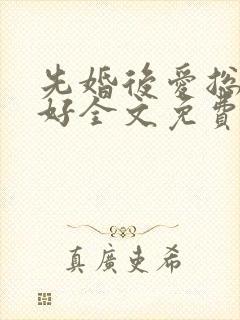 先婚後愛总
好全文免費
真廣史希